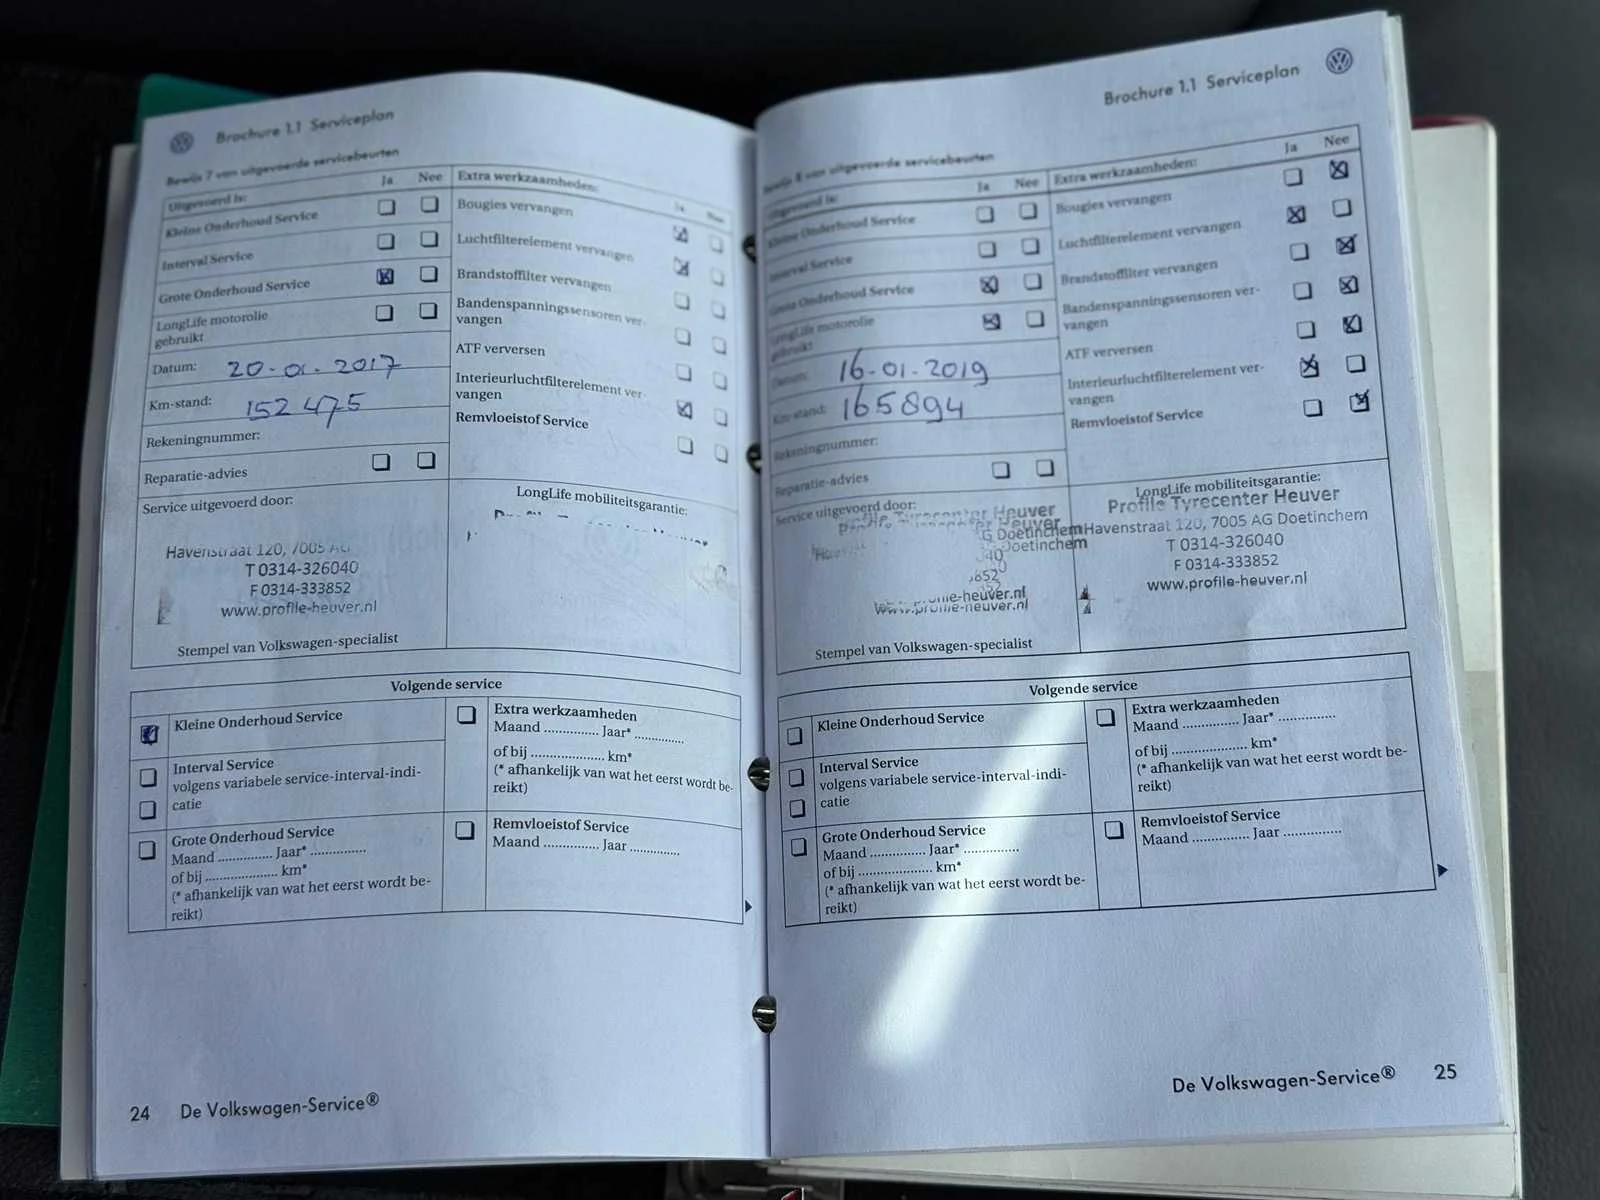 Brochure 1.1 Serviceplan
Bewijs 7 van uitgevoerde servicebeurten
Uitgevoerd is: Ja Nee
Kleine Onderhoud Service
Interval Service
Grote Onderhoud Service
LongLife motorolie
gebruikt
Datum: 20-01-2017
Km-stand: 152475
Rekeningnummer:
Reparatie-advies
Extra werkzaamheden: Ja Nee
Bougies vervangen
Luchtfilterelement vervangen
Brandstoffilter vervangen
Bandenspanningssensoren ver-
vangen
ATF verversen
Interieurluchtfilterelement ver-
vangen
Remvloeistof Service
Service uitgevoerd door:
Havenstraat 120, 7005 AG
T 0314-326040
F 0314-333852
www.profile-heuver.nl
Stempel van Volkswagen-specialist
LongLife mobiliteitsgarantie:
Volgende service
Kleine Onderhoud Service
Interval Service
volgens variabele service-interval-indi-
catie
Grote Onderhoud Service
Maand ............... Jaar* ...............
of bij .................... km*
(* afhankelijk van wat het eerst wordt be-
reikt)
Extra werkzaamheden
Maand ............... Jaar* ...............
of bij .................... km*
(* afhankelijk van wat het eerst wordt be-
reikt)
Remvloeistof Service
Maand ............... Jaar ...............
24 De Volkswagen-Service®
Brochure 1.1 Serviceplan
Bewijs 8 van uitgevoerde servicebeurten
Uitgevoerd is: Ja Nee
Kleine Onderhoud Service
Interval Service
Grote Onderhoud Service
LongLife motorolie
gebruikt
Datum: 16-01-2019
Km-stand: 165894
Rekeningnummer:
Reparatie-advies
Extra werkzaamheden: Ja Nee
Bougies vervangen
Luchtfilterelement vervangen
Brandstoffilter vervangen
Bandenspanningssensoren ver-
vangen
ATF verversen
Interieurluchtfilterelement ver-
vangen
Remvloeistof Service
Service uitgevoerd door:
Profile Tyrecenter Heuver
Heuver
G Doetinchem
Doetinchem
www.profile-heuver.nl
Stempel van Volkswagen-specialist
LongLife mobiliteitsgarantie:
Profile Tyrecenter Heuver
Havenstraat 120, 7005 AG Doetinchem
T 0314-326040
F 0314-333852
www.profile-heuver.nl
Volgende service
Kleine Onderhoud Service
Interval Service
volgens variabele service-interval-indi-
catie
Grote Onderhoud Service
Maand ............... Jaar* ...............
of bij .................... km*
(* afhankelijk van wat het eerst wordt be-
reikt)
Extra werkzaamheden
Maand ............... Jaar* ...............
of bij .................... km*
(* afhankelijk van wat het eerst wordt be-
reikt)
Remvloeistof Service
Maand ............... Jaar ...............
De Volkswagen-Service® 25